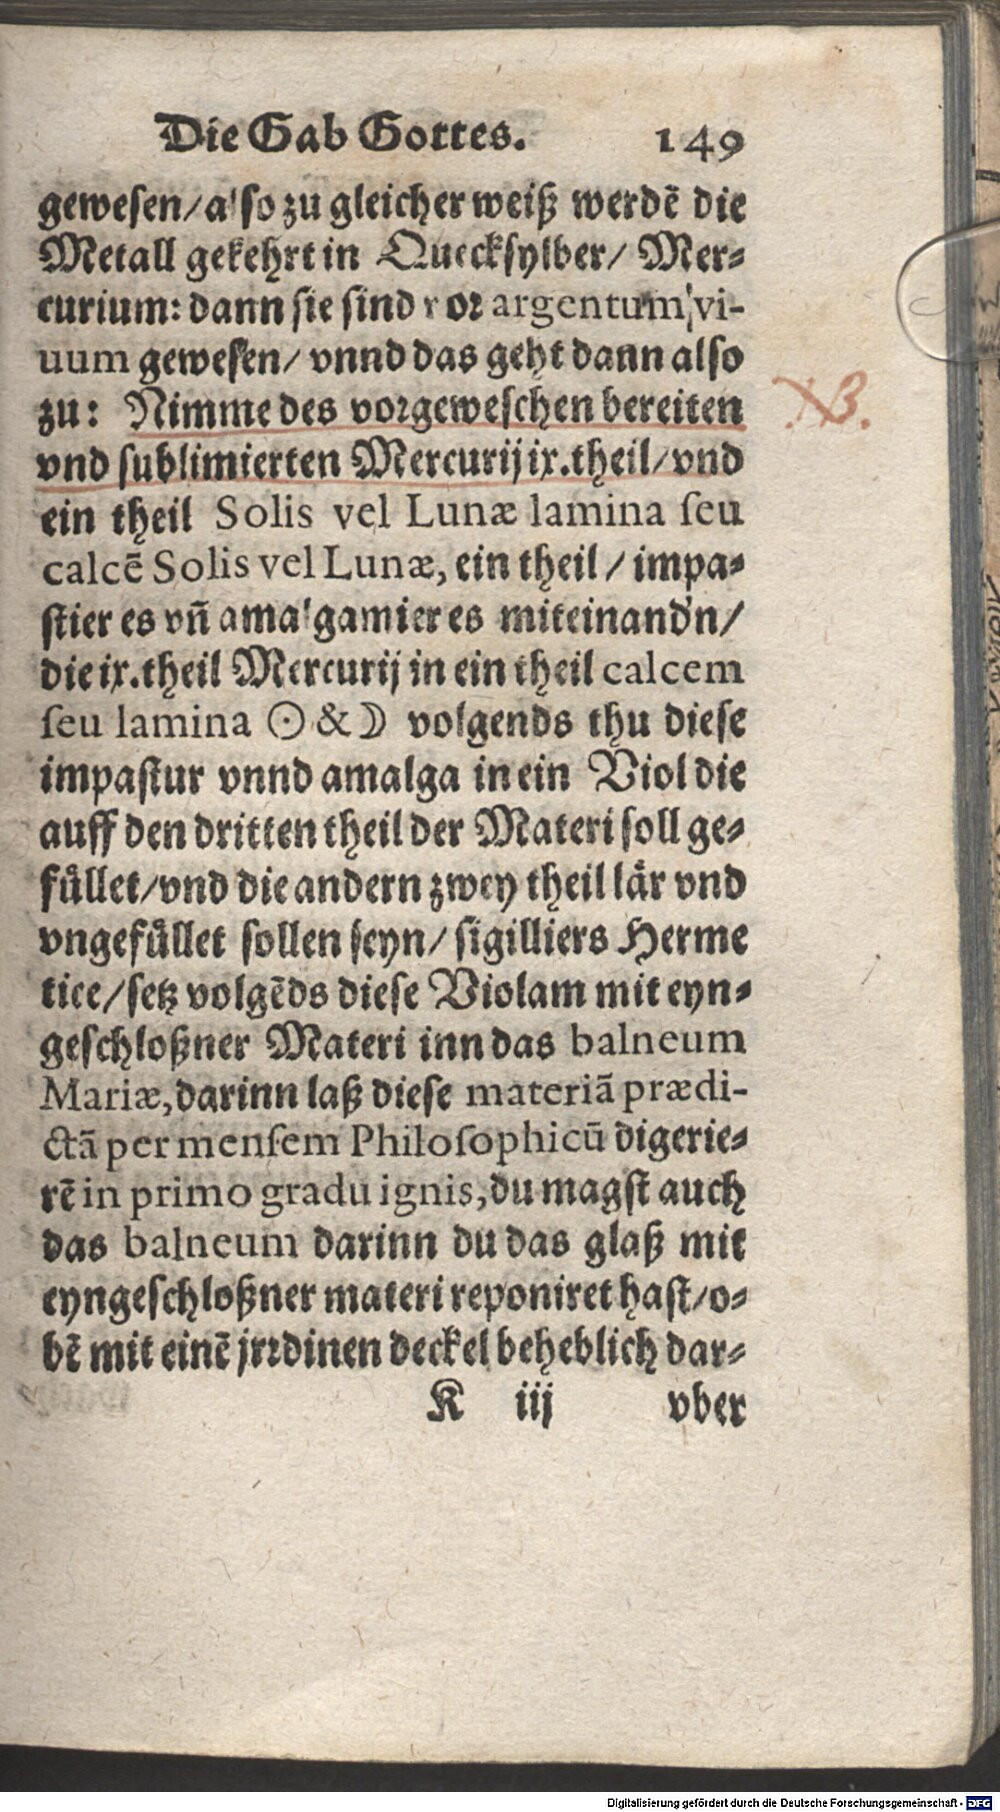 Die Gab Gottes. 149
gewesen/also zu gleicher weiß werdẽ die
Metall gekehrt in Quecksylber/ Mer-
curium: dann sie sind vor argentum vi-
uum gewesen/ vnnd das geht dann also
zu: Nimme des vorgeweschen bereiten
NB.
vnd sublimierten Mercurij ix.theil/vnd
ein theil Solis vel Lunæ lamina ſeu
calcẽ Solis vel Lunæ, ein theil/ impa-
stier es vñ amalgamier es miteinand'n/
die ix.theil Mercurij in ein theil calcem
ſeu lamina ☉ & ☽ volgends thu diese
impastur vnnd amalga in ein Viol die
auff den dritten theil der Materi soll ge-
fuͤllet/vnd die andern zwey theil laͤr vnd
vngefuͤllet sollen seyn/ sigilliers Herme
tice/setz volgẽds diese Violam mit eyn-
geschloßner Materi inn das balneum
Mariæ, darinn laß diese materiã prædi-
ctã per menſem Philoſophicũ digerie-
rẽ in primo gradu ignis, du magst auch
das balneum darinn du das glaß mit
eyngeschloßner materi reponiret hast/o-
bẽ mit einẽ jrrdinen deckel beheblich dar-
K iij vber
Digitalisierung gefördert durch die Deutsche Forschungsgemeinschaft - DFG